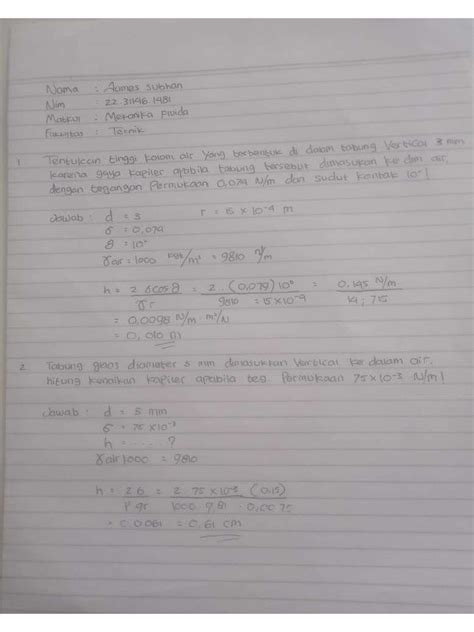 Nama : Aamas Subhan
Nim : 22.31196.1481
Matkul : Mekanika Fluida
Fakultas : Teknik
1. Tentukan tinggi kolam air yang terbentuk di dalam tabung Vertical 3 mm
karena gaya kapiler apabila tabung tersebut dimasukan ke dlm air,
dengan tegangan Permukaan 0,079 N/m dan sudut kontak 10°!
Jawab : d = 3 r = 15 x 10⁻⁴ m
σ = 0,079
θ = 10°
γair = 1000 /m³ = 9810
h = 2 σ cos θ = 2 . (0,079) 10° = 0,145 N/m
γr 9810 = 15 x 10⁻⁴ 14,715
= 0,0098 N/m m²/N
= 0,010 m
2. Tabung glass diameter 5 mm dimasukkan Vertical ke dalam air.
hitung kenaikan kapiler apabila teg. Permukaan 75 x 10⁻³ N/m!
Jawab : d = 5 mm
σ = 75 x 10⁻³
h = ...... ?
γair 1000 = 9810
h = 2 σ = 2 . 75 x 10⁻³ (0,15)
ρ gr 1000 . 9,81 . 0,0075
= 0,0061 = 0,61 cm